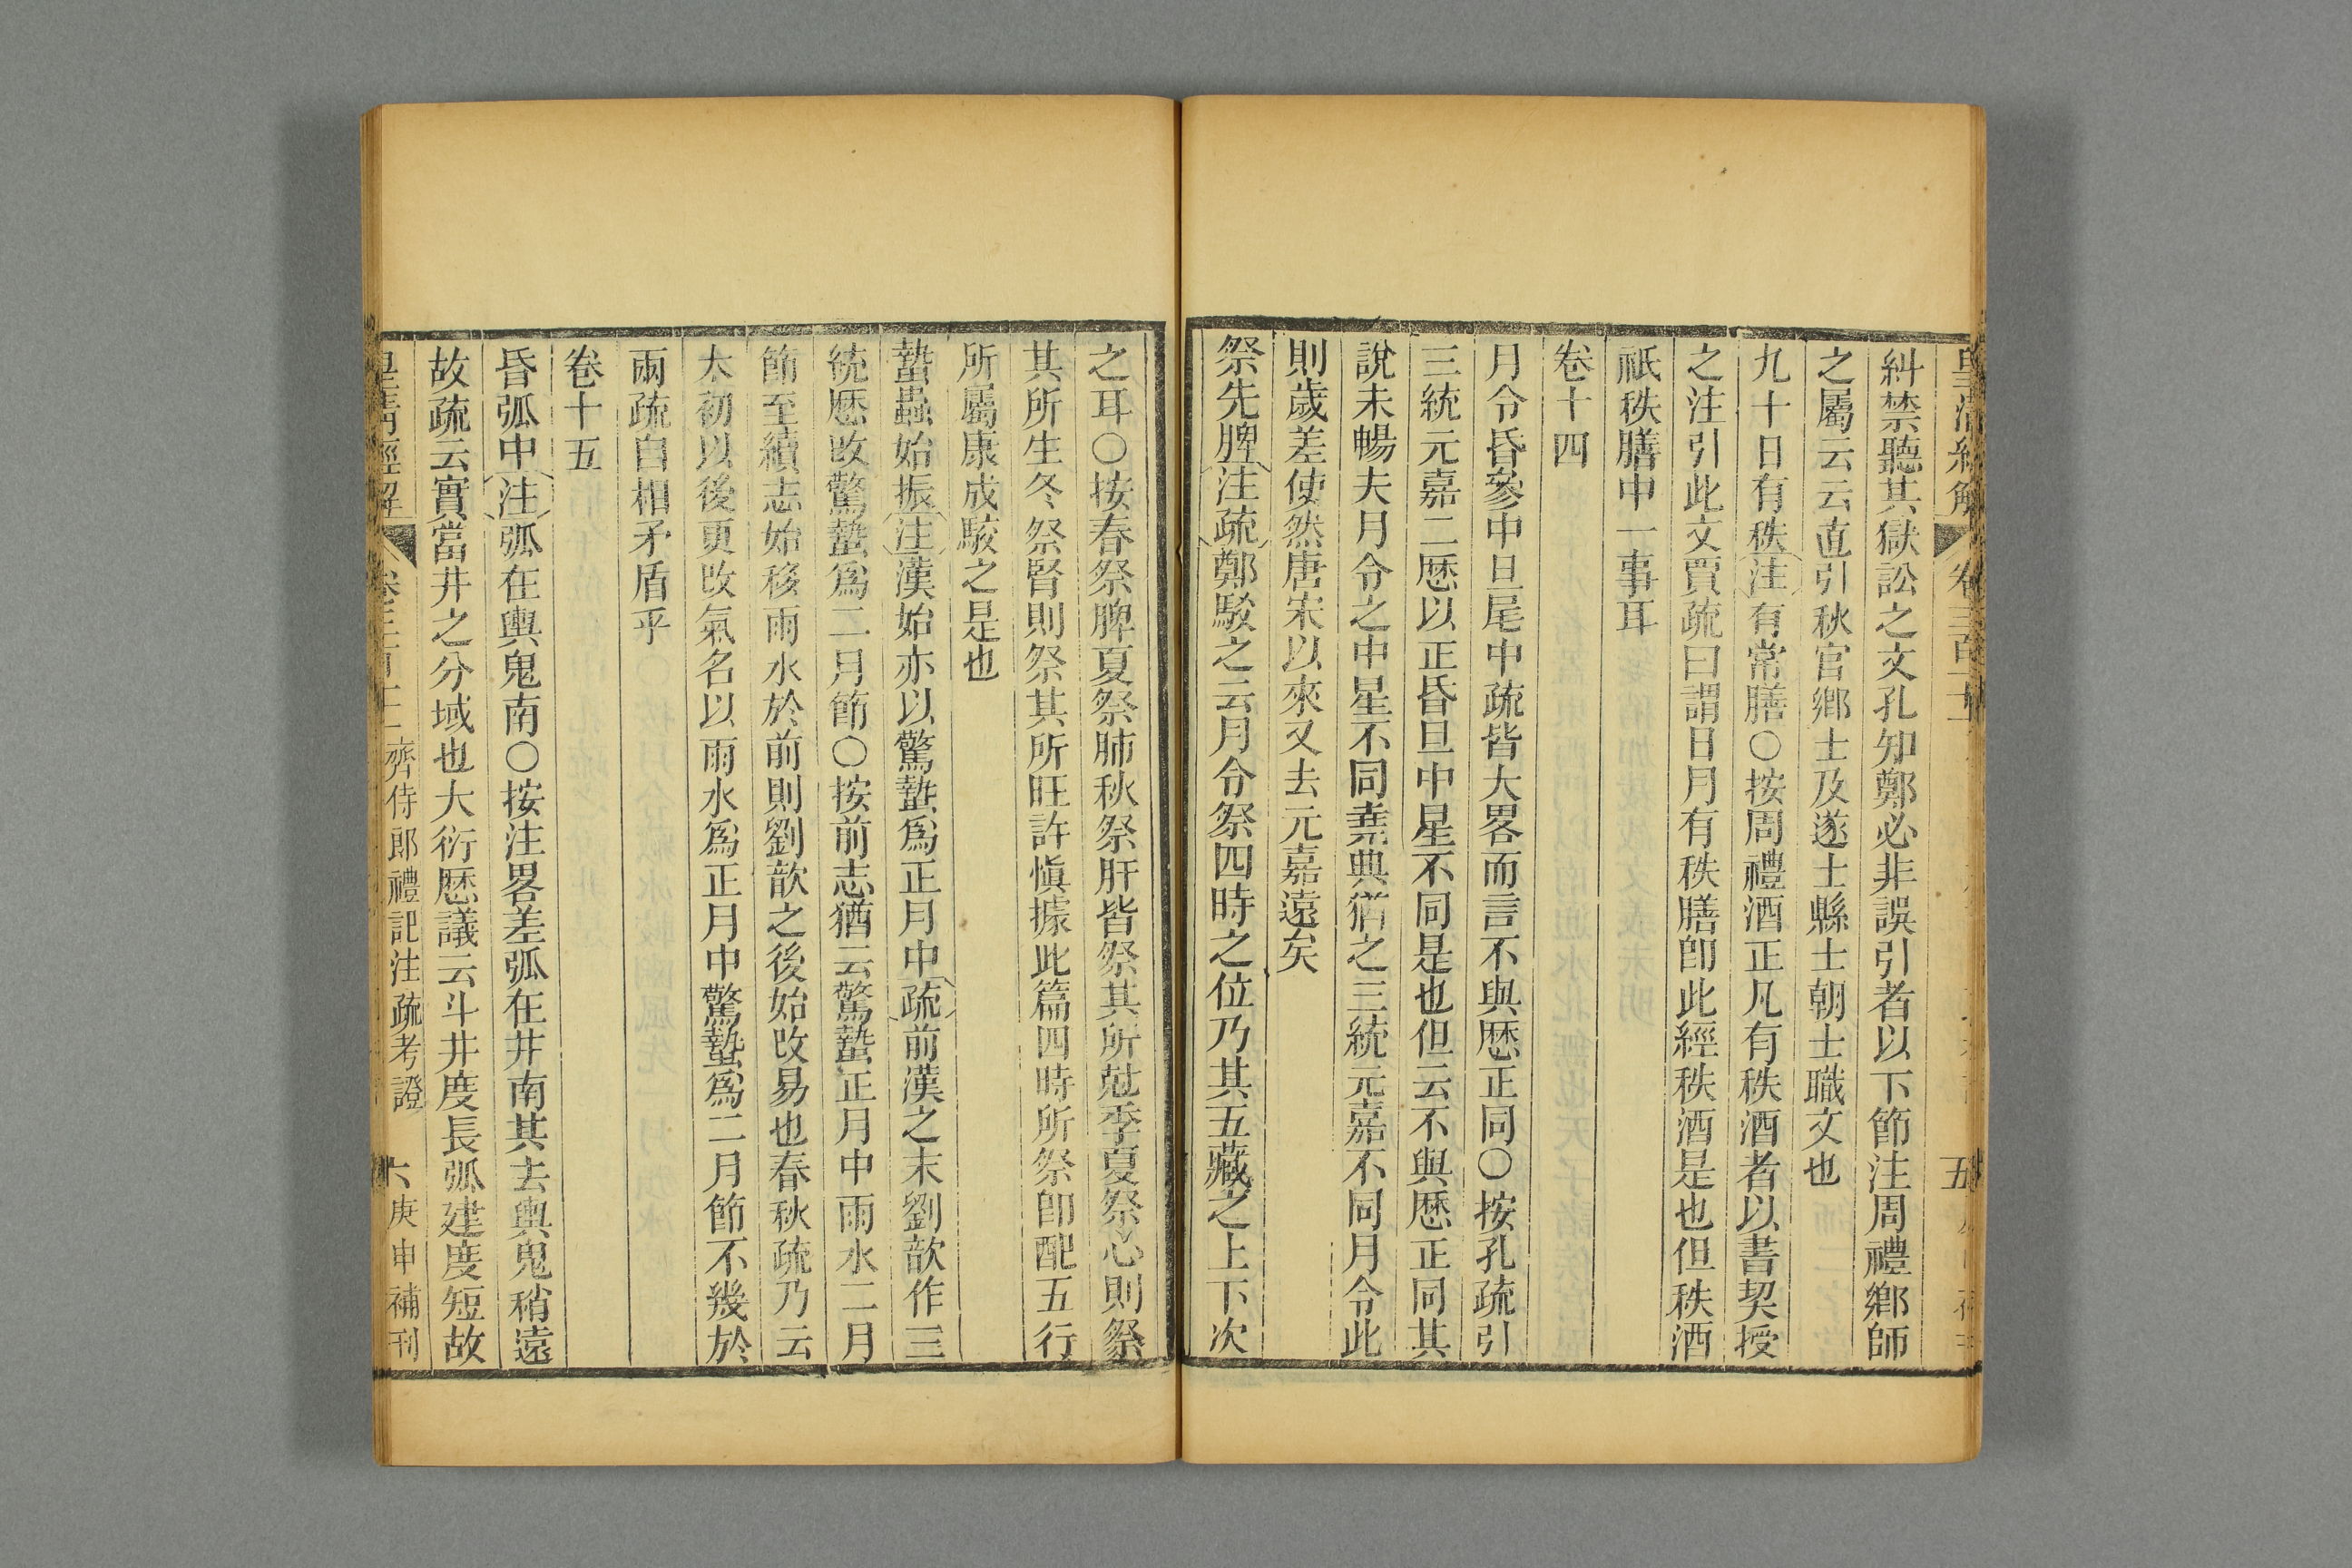 皇清經解 卷三百十二 五
糾禁聽其獄訟之文孔知鄭必非誤引者以下節注周禮鄉師
之屬云云直引秋官鄉士及遂士縣士朝士職文也
九十日有秩注有常膳○按周禮酒正凡有秩酒者以書契授
之注引此文賈疏曰謂日月有秩膳卽此經秩酒是也但秩酒
祇秩膳中一事耳
卷十四
月令昏參中旦尾中疏皆大畧而言不與歷正同○按孔疏引
三統元嘉二歷以正昏旦中星不同是也但云不與歷正同其
說未暢夫月令之中星不同堯典猶之三統元嘉不同月令此
則歲差使然唐宋以來又去元嘉遠矣
祭先脾注疏鄭駁之云月令祭四時之位乃其五藏之上下次
之耳○按春祭脾夏祭肺秋祭肝皆祭其所尅季夏祭心則祭
其所生冬祭腎則祭其所旺許愼據此篇四時所祭卽配五行
所屬康成駁之是也
蟄蟲始振注漢始亦以驚蟄爲正月中疏前漢之末劉歆作三
統歷改驚蟄爲二月節○按前志猶云驚蟄正月中雨水二月
節至續志始移雨水於前則劉歆之後始改易也春秋疏乃云
太初以後更改氣名以雨水爲正月中驚蟄爲二月節不幾於
兩疏自相矛盾乎
卷十五
昏弧中注弧在輿鬼南○按注畧差弧在井南其去輿鬼稍遠
故疏云實當井之分域也大衍歷議云斗井度長弧建度短故
皇清經解 卷三百十二 齊侍郎禮記注疏考證 六 庚申補刊